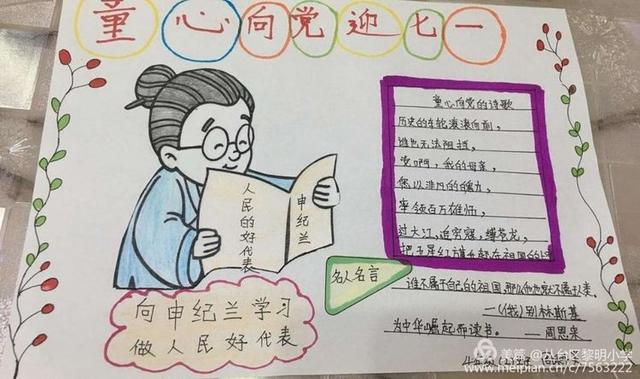 童心向党迎七一
童心向党的诗歌
历史的车轮滚滚向前,
谁也无法阻挡,
党啊,我的母亲,
您以非凡的魄力,
率领百万雄师,
过大江,追穷寇,缚苍龙,
把五星红旗
人民的好代表
申纪兰
名人名言
谁不属于自己的祖国,那么他也就不属于人类。
—(俄)别林斯基
为中华崛起而读书。 —周恩来
向申纪兰学习
做人民好代表
美篇 @丛台区黎明小学
www.meipian.cn/c/7563222